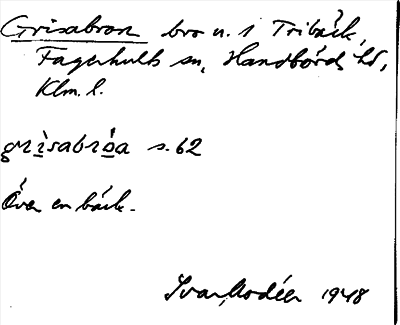 Grisabron bro n. 1 Tribäck,
Fagerhults sn, Handbörds hd,
Klm. l.
grìsabróa s. 62
Över en bäck.
Ivar Modéer 1948